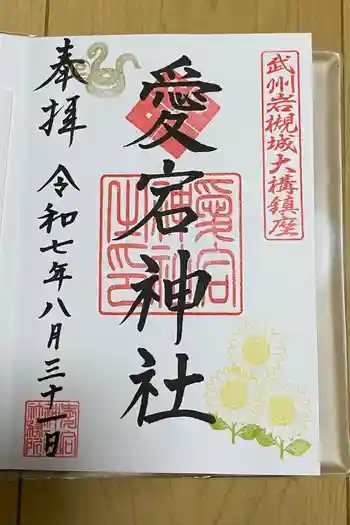 武州岩槻城大構鎮座
愛宕神社
奉拝 令和七年八月三十一日
愛宕神社之印